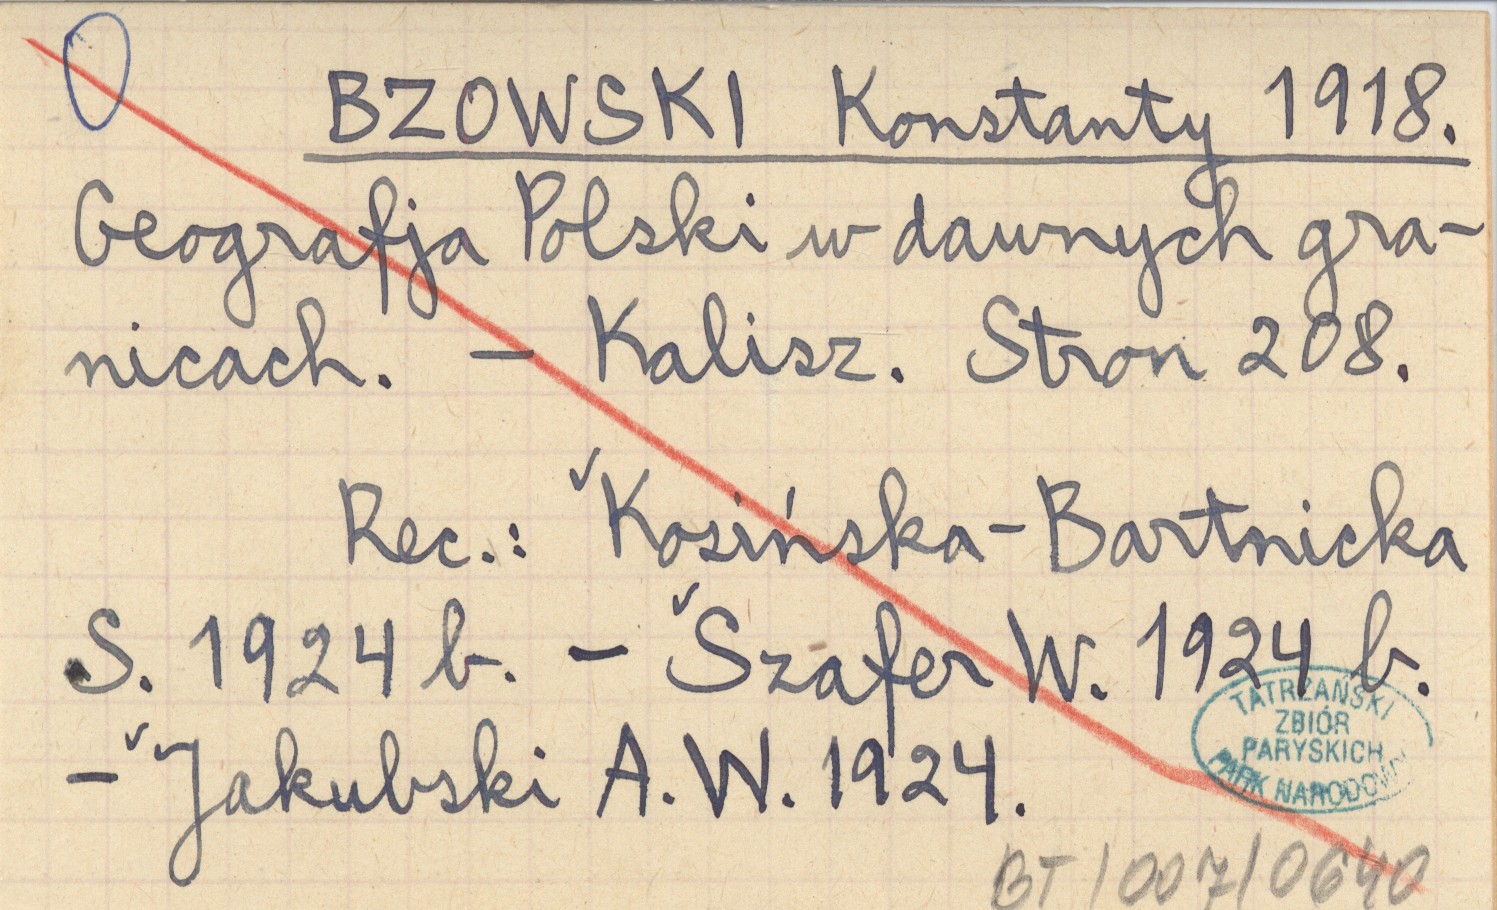 BZOWSKI Konstanty 1918.
Geografja Polski w dawnych gra-
nicach. – Kalisz. Stron 208.
Rec.: Kosińska-Bartnicka
S. 1924 b. – Szafer W. 1924 b.
– Jakubski A. W. 1924.
TATRZAŃSKI
ZBIÓR
PARYSKICH
PARK NARODOWY
BT/007/0640